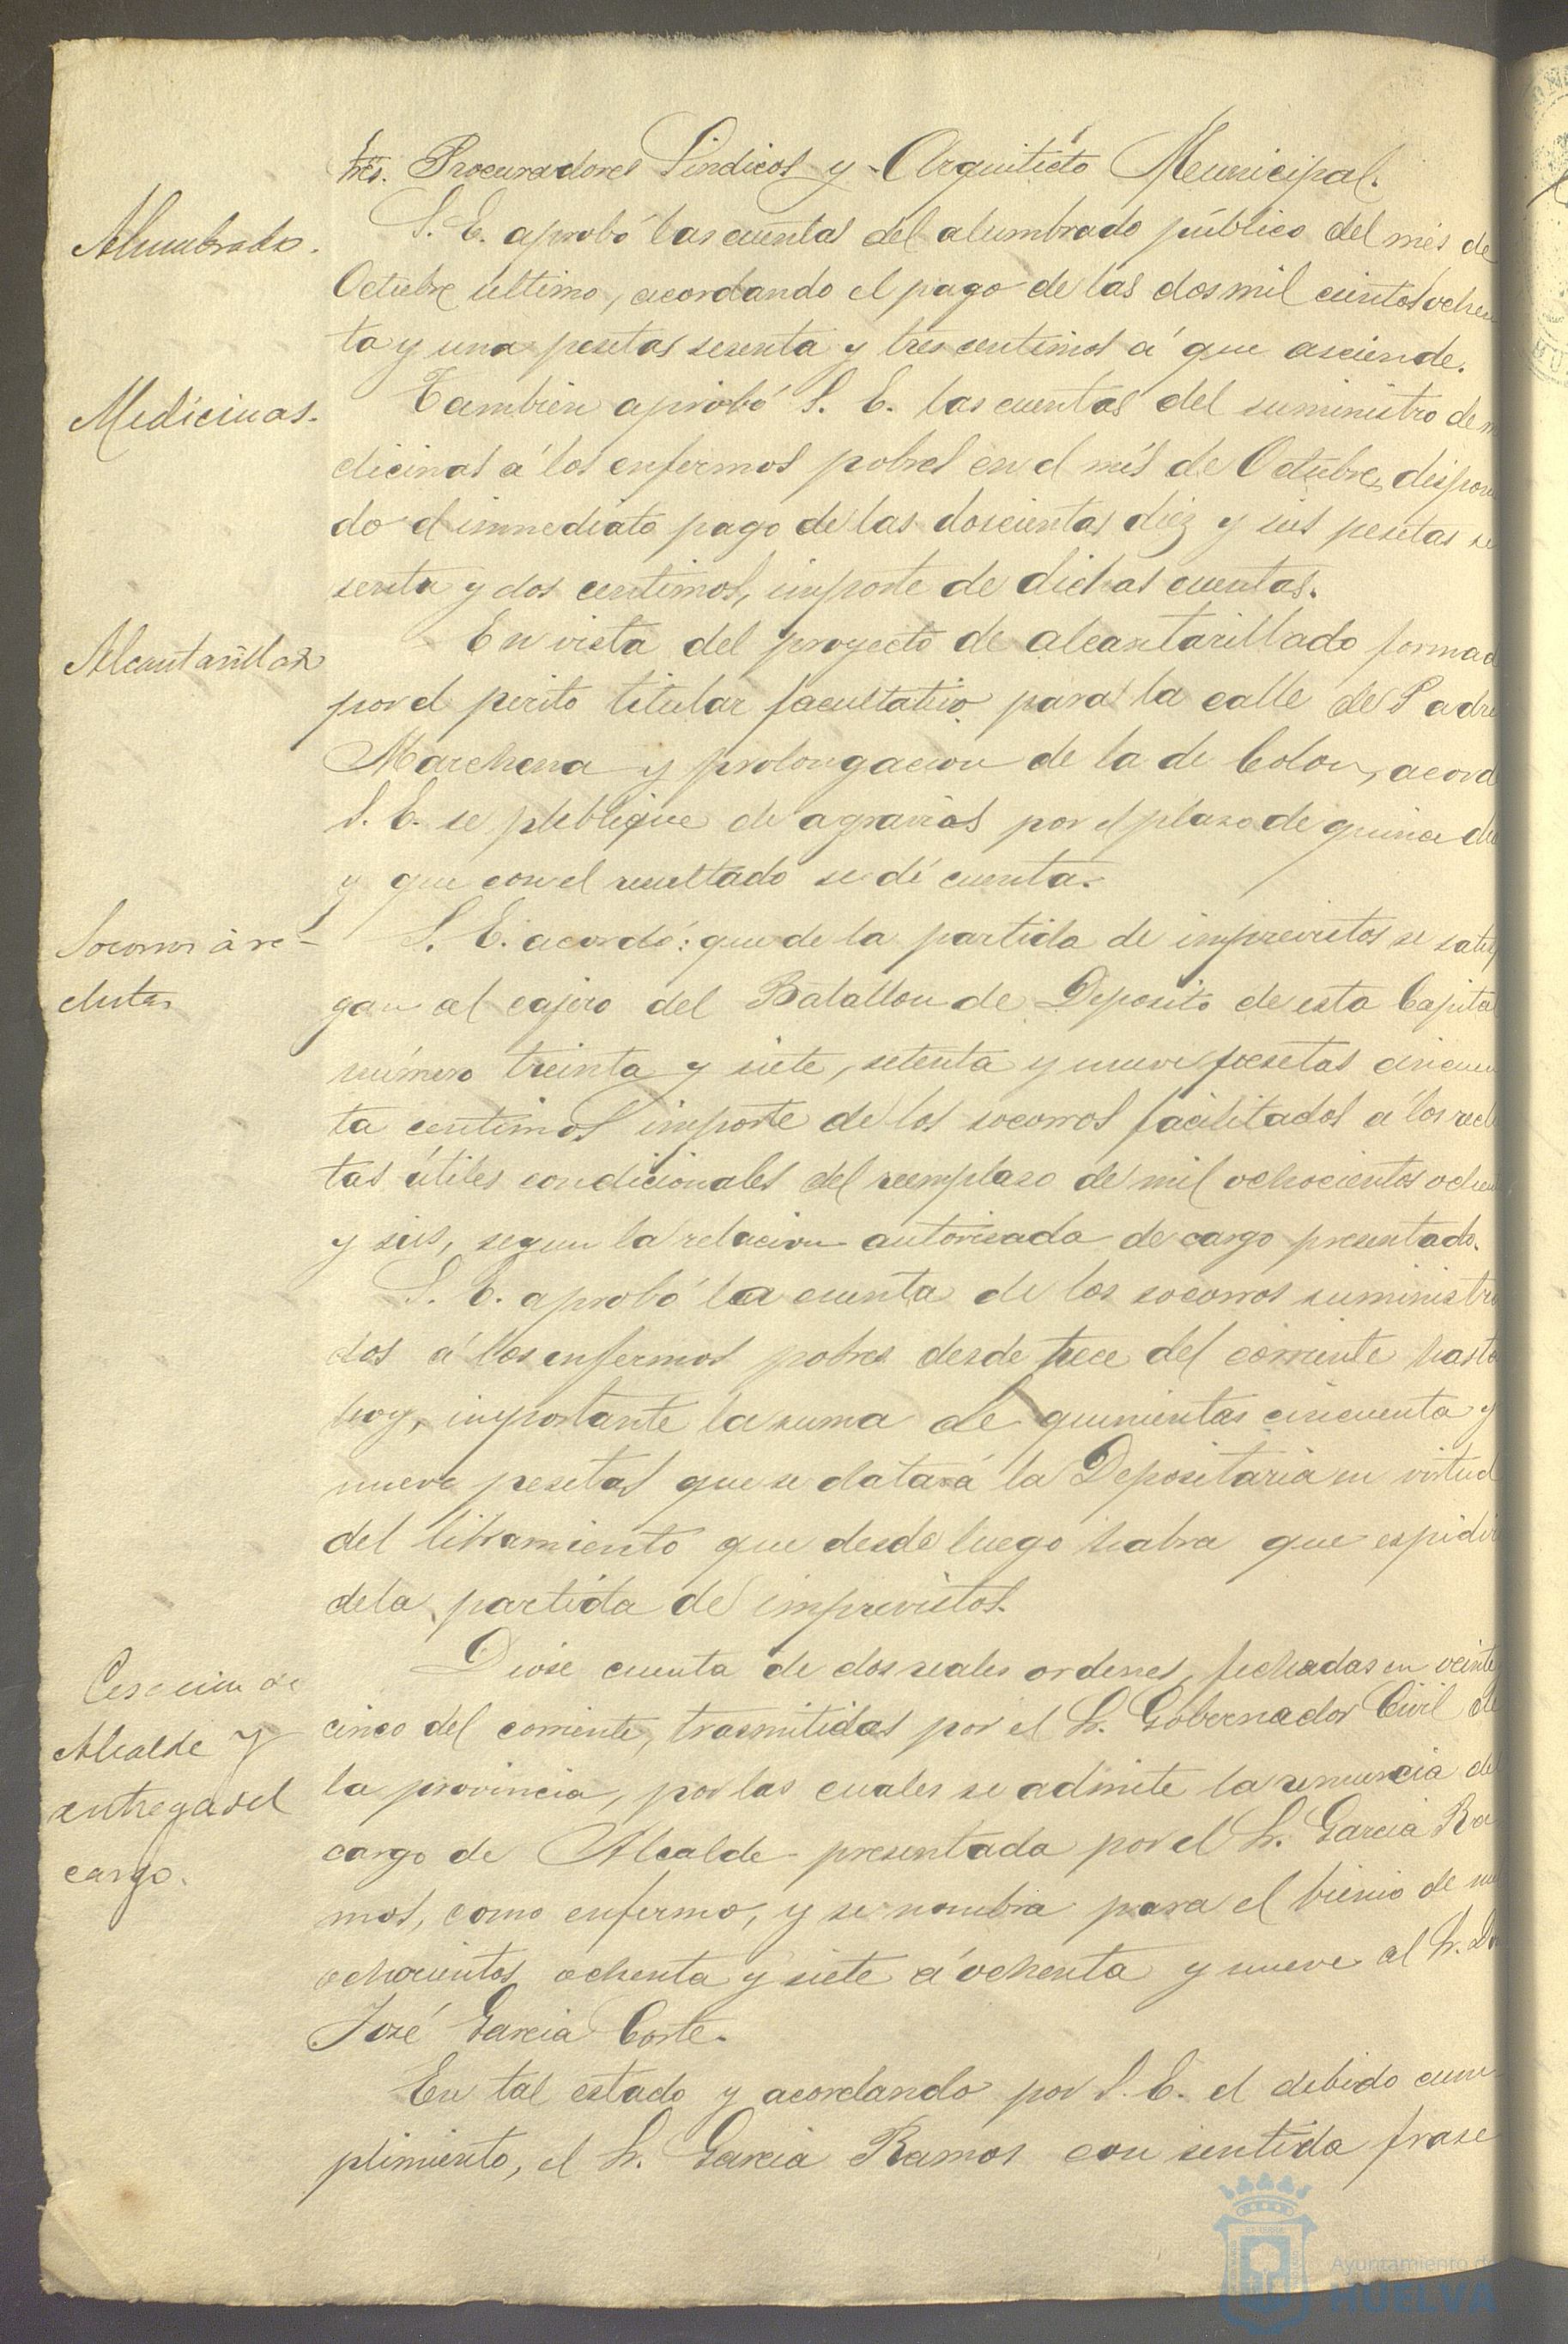 tres. Procuradores Sindicos y Arquitecto Municipal.
Alumbrado.
S. E. aprobó las cuentas del alumbrado público del més de
Octubre último, acordando el pago de las dos mil cientos ochen
ta y una pesetas sesenta y tres centimos á que asciende.
Medicinas.
Tambien aprobó S. E. las cuentas del suministro de m
dicinas á los enfermos pobres en el més de Octubre, dispon
do el immediato pago de las doscientas diez y seis pesetas se
senta y dos centimos, importe de dichas cuentas.
Alcantarillas
En vista del proyecto de alcantarillado formad
por el perito titular facultativo para la calle de Padre
Marchena y prolongacion de la de Colon, acord
S. E. se publique de agravios por el plazo de quince di
y que con el resultado se dé cuenta.
Socorros à re-
clutas
S. E. acordó: que de la partida de imprevistos se satisf
gan al cajero del Batallon de Deposito de esta Capital
número treinta y siete, setenta y nueve pesetas cincuen
ta centimos importe de los socorros facilitados á los reclu
tas útiles condicionales del reemplazo de mil ochocientos ochen
y seis, segun la relacion autorisada de cargo presentado.
S. E. aprobó la cuenta de los socorros suministra
dos á los enfermos pobres desde trece del corriente hasta
hoy, importante la suma de quinientas cincuenta y
nueve pesetas que se datará la Depositaria en virtud
del libramiento que desde luego habra que espidir
de la partida de imprevistos.
Cesacion de
Alcalde y
entrega del
cargo.
Diose cuenta de dos reales ordenes, fechadas en veinte
cinco del corriente, trasmitidas por el Sr. Gobernador Civil de
la provincia, por las cuales se admite la renuncia del
cargo de Alcalde presentada por el Sr. Garcia Ra
mos, como enfermo, y se nombra para el bienio de mil
ochocientos ochenta y siete á ochenta y nueve al Sr. Dn
José Garcia Corte.
En tal estado y acordando por S. E. el debido cum
plimiento, el Sr. Garcia Ramos con sentida frase
Ayuntamiento de
HUELVA